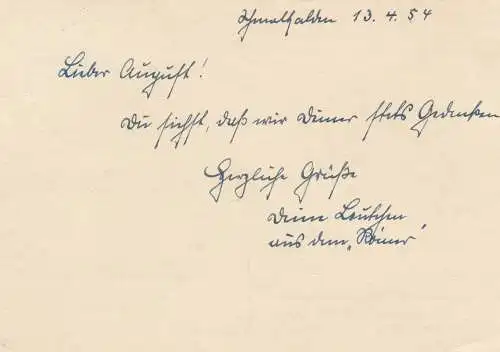 Schmalkalden 13. 4. 54
Lieber August!
Du siehst, daß wir Deiner stets gedenken
Herzliche Grüße
Deine Leutchen
aus dem „Römer“